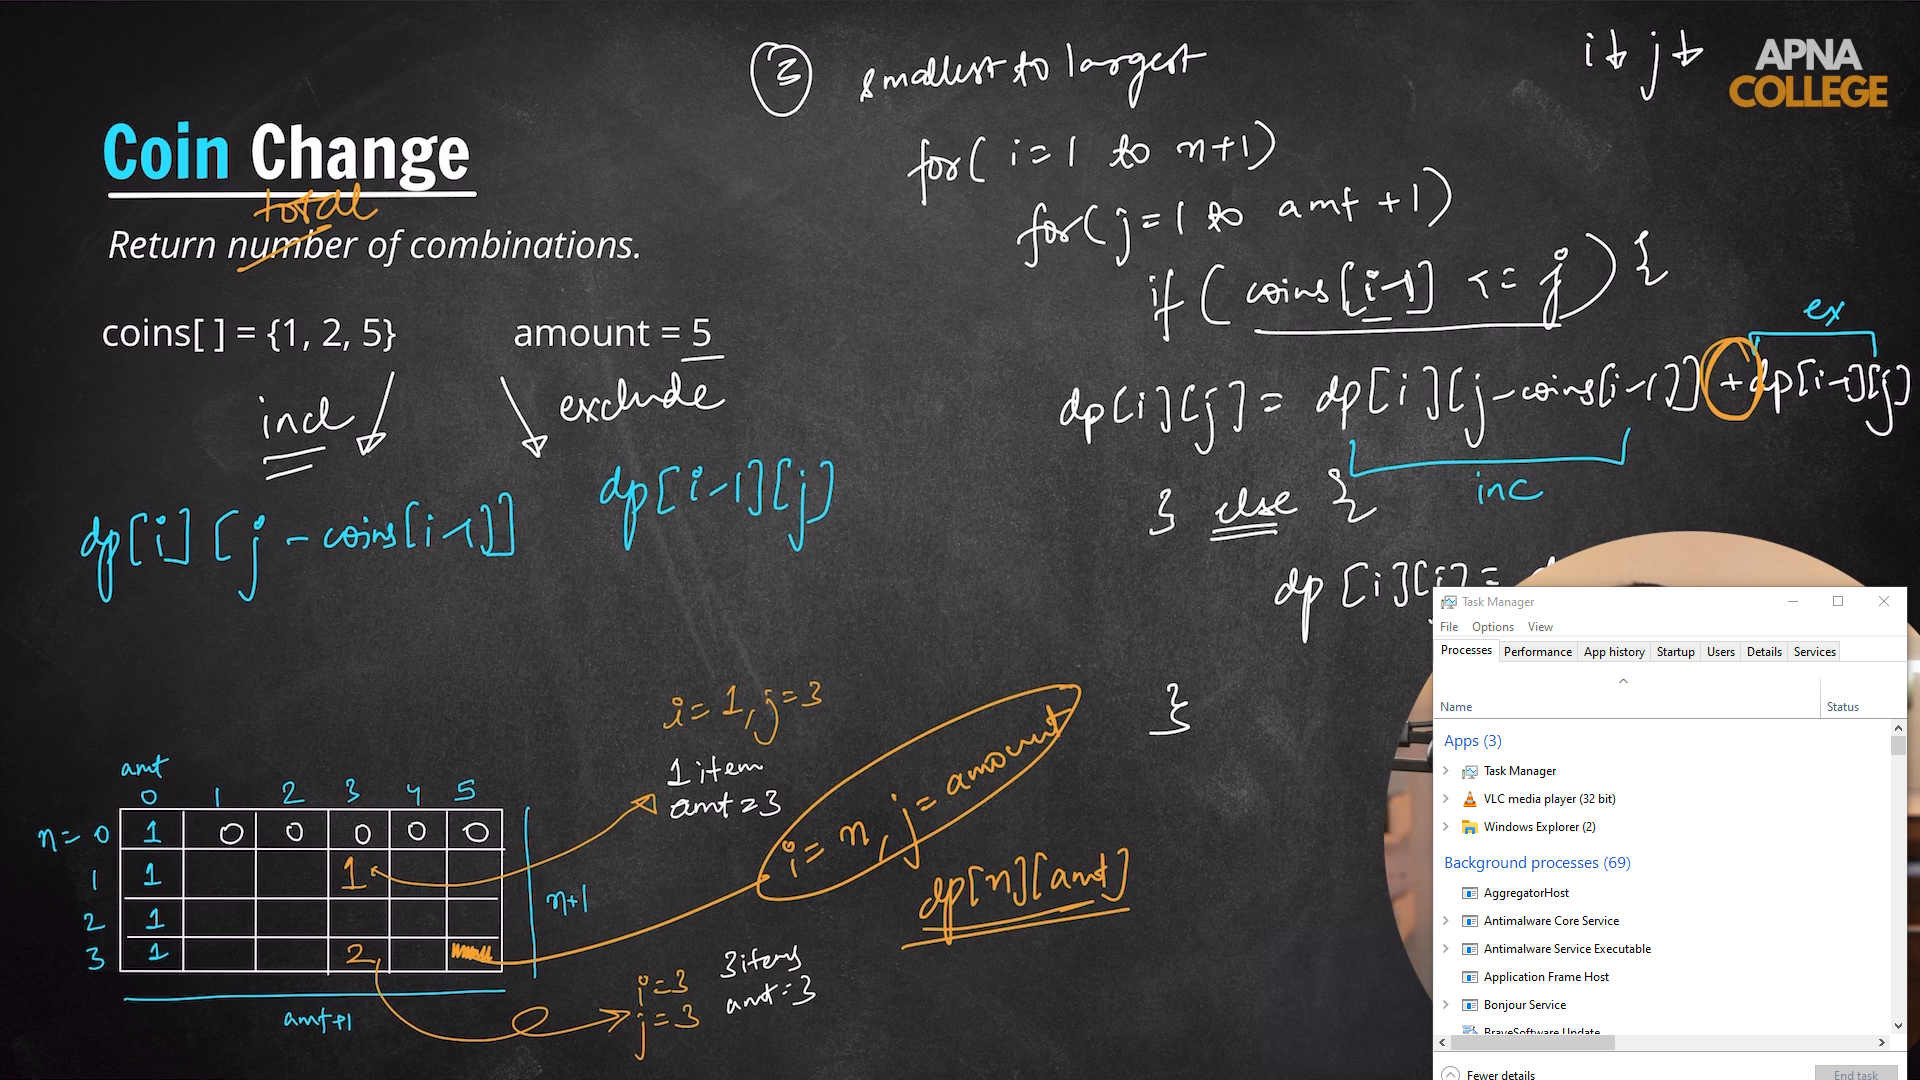 APNA
COLLEGE
i↓ j↓
③ smallest to largest
Coin Change
total
Return number of combinations.
coins[ ] = {1, 2, 5}
amount = 5
incl
exclude
dp[i][j - coins[i-1]]
dp[i-1][j]
for( i=1 to n+1)
for( j=1 to amt +1)
if ( coins[i-1] <= j ) {
ex
dp[i][j] = dp[i][j-coins[i-1]] + dp[i-1][j]
inc
} else {
dp [i][j] =
}
i= 1, j=3
1 item
amt=3
i= n, j= amount
dp[n][amt]
amt
0 1 2 3 4 5
n= 0 1 0 0 0 0 0
1 1 1
2 1
3 1 2
n+1
amt+1
i=3
j=3
3items
amt=3
Task Manager
File Options View
Processes Performance App history Startup Users Details Services
Name Status
Apps (3)
Task Manager
VLC media player (32 bit)
Windows Explorer (2)
Background processes (69)
AggregatorHost
Antimalware Core Service
Antimalware Service Executable
Application Frame Host
Bonjour Service
BraveSoftware Update
Fewer details
End task